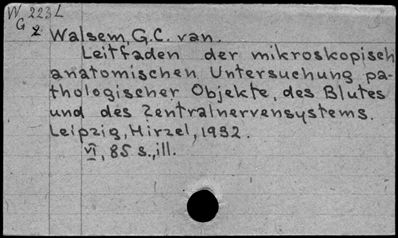 W 223L
G 2 Walsem, G.C. van.
Leitfaden der mikroskopisch
anatomischen Untersuchung pa-
thologischer Objekte, des Blutes
und des Zentralnervensystems.
Leipzig, Hirzel, 1932.
VI, 85 s., ill.